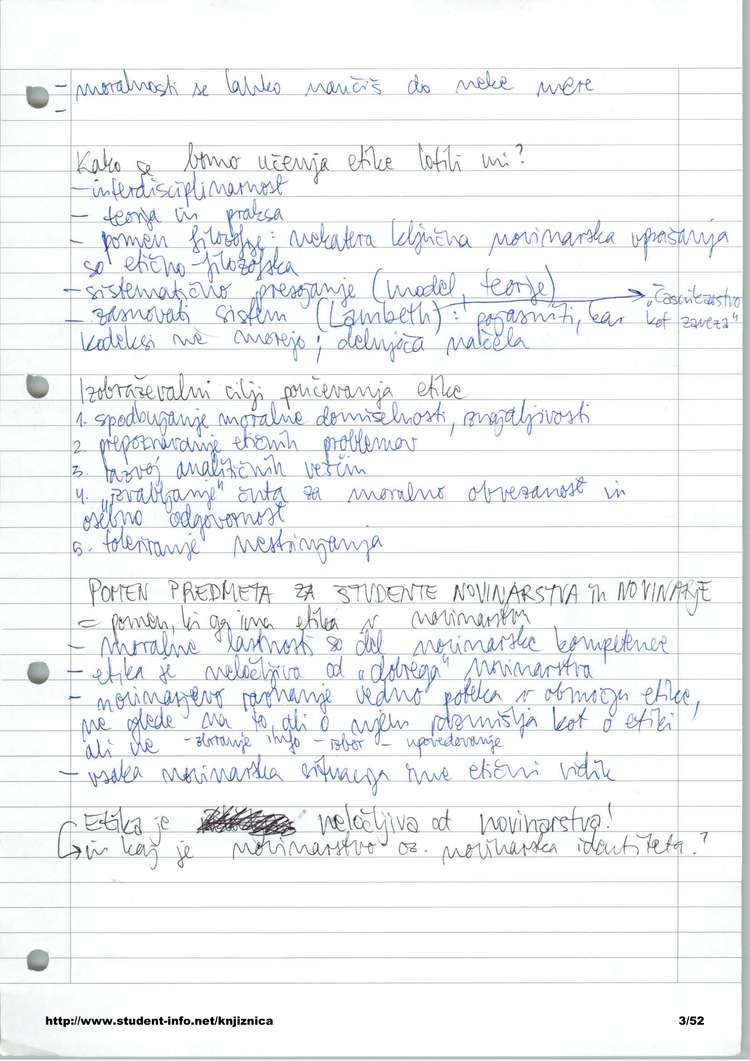 - moralnosti se lahko naučiš do neke mere
-
Kako se bomo učenja etike lotili mi?
- interdisciplinarnost
- teorija in praksa
- pomen filozofije: nekatera ključna novinarska vprašanja
so etično-filozofska
- sistematično presojanje (model, teorije)
- zasnovati sistem (Lambeth): pojasniti, kar
kodeksi ne morejo; delujoča načela
→ "Časnikarstvo
kot zaveza"
Izobraževalni cilji poučevanja etike
1. spodbujanje moralne domiselnosti, iznajdljivosti
2. prepoznavanje etičnih problemov
3. razvoj analitičnih veščin
4. "izvabljanje" čuta za moralno obvezanost in
osebno odgovornost
5. toleriranje nestrinjanja
POMEN PREDMETA ZA ŠTUDENTE NOVINARSTVA in NOVINARJE
= pomen, ki ga ima etika v novinarstvu
- moralne lastnosti so del novinarske kompetence
- etika je neločljiva od "dobrega" novinarstva
- novinarjevo ravnanje vedno poteka v območju etike,
ne glede na to, ali o njem razmišlja kot o etiki
ali ne - zbiranje info - izbor - upovedovanje
- vsaka novinarska situacija ime etični vidik
Etika je neločljiva od novinarstva!
↳ in kaj je novinarstvo oz. novinarska identiteta?
http://www.student-info.net/knjiznica
3/52